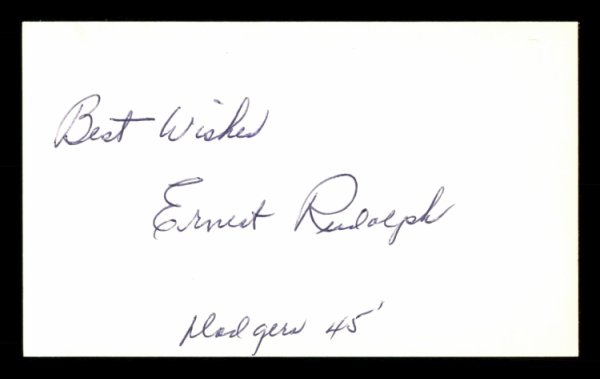 Best Wishes
Ernest Rudolph
Dodgers 45'